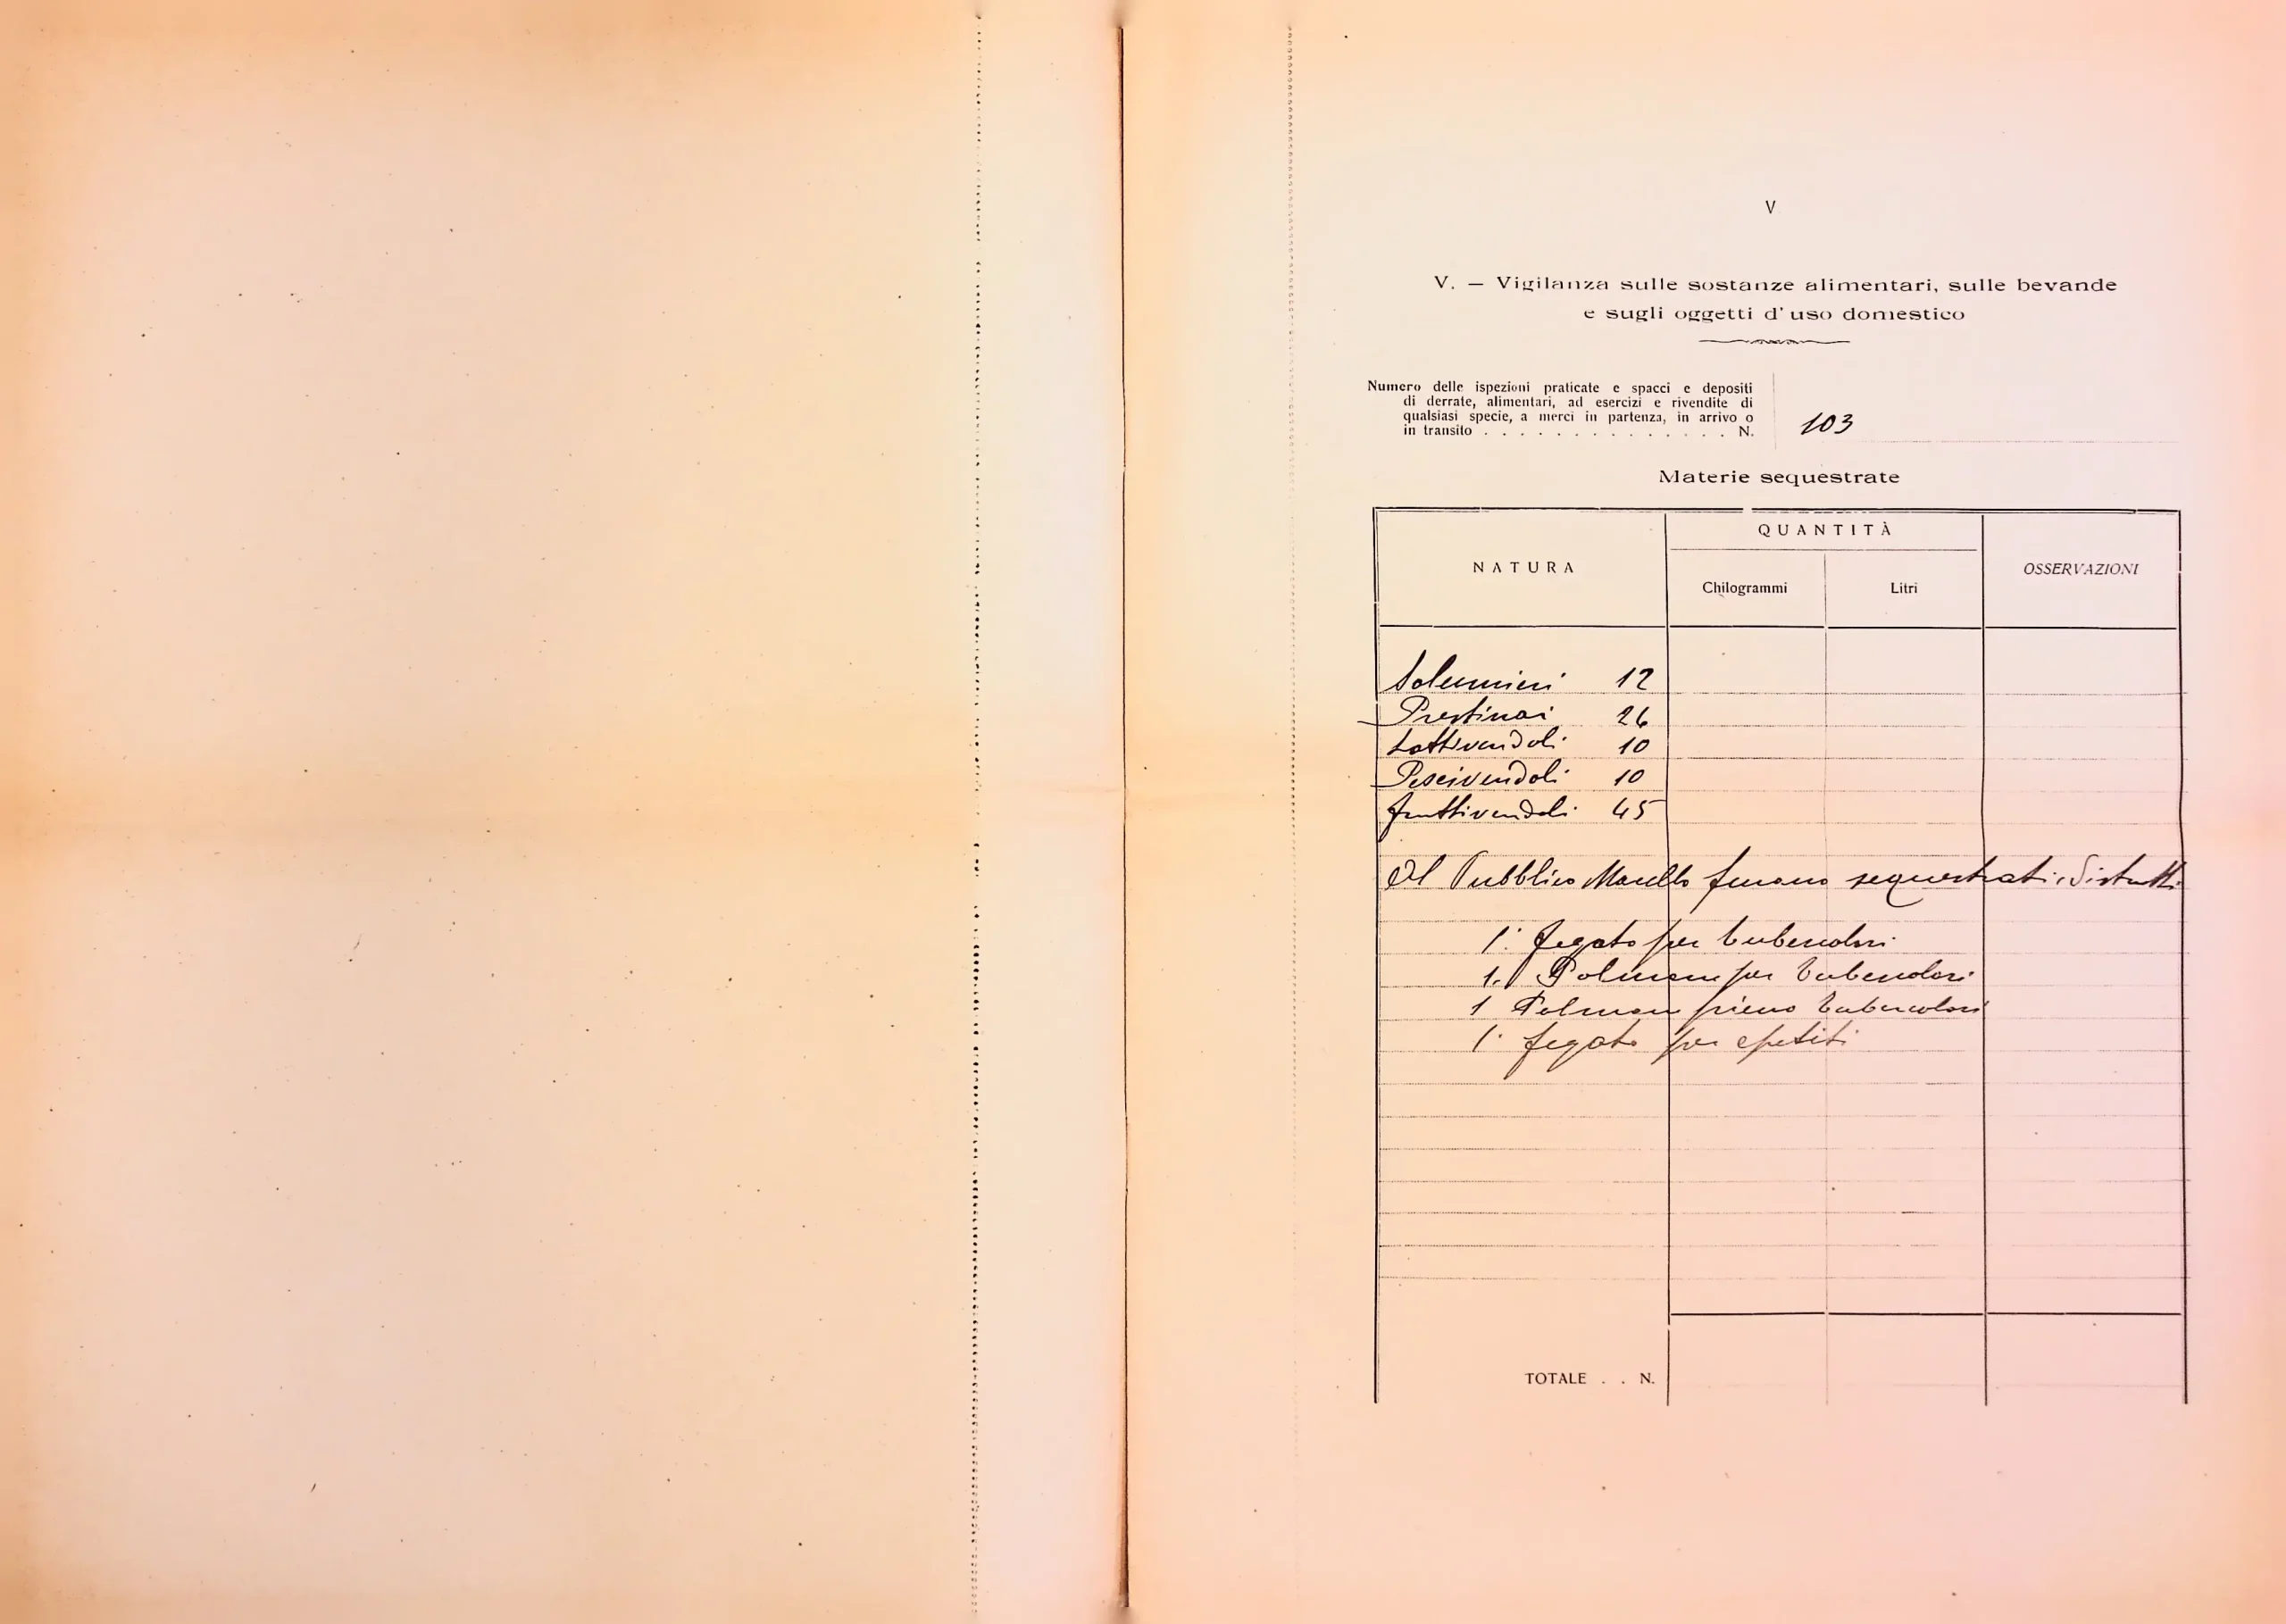 V
V. — Vigilanza sulle sostanze alimentari, sulle bevande
e sugli oggetti d'uso domestico
Numero delle ispezioni praticate e spacci e depositi
di derrate, alimentari, ad esercizi e rivendite di
qualsiasi specie, a merci in partenza, in arrivo o
in transito . . . . . . . . . . . . . . N. 103
Materie sequestrate
NATURA
QUANTITÀ
Chilogrammi
Litri
OSSERVAZIONI
Salumieri 12
Prestinai 26
Lattivendoli 10
Pescivendoli 10
fruttivendoli 45
Al Pubblico Macello furono sequestrati e distrutti
1 fegato per tubercolosi
1 Polmone per tubercolosi
1 Polmone pieno tubercolosi
1 fegato per
TOTALE . . N.